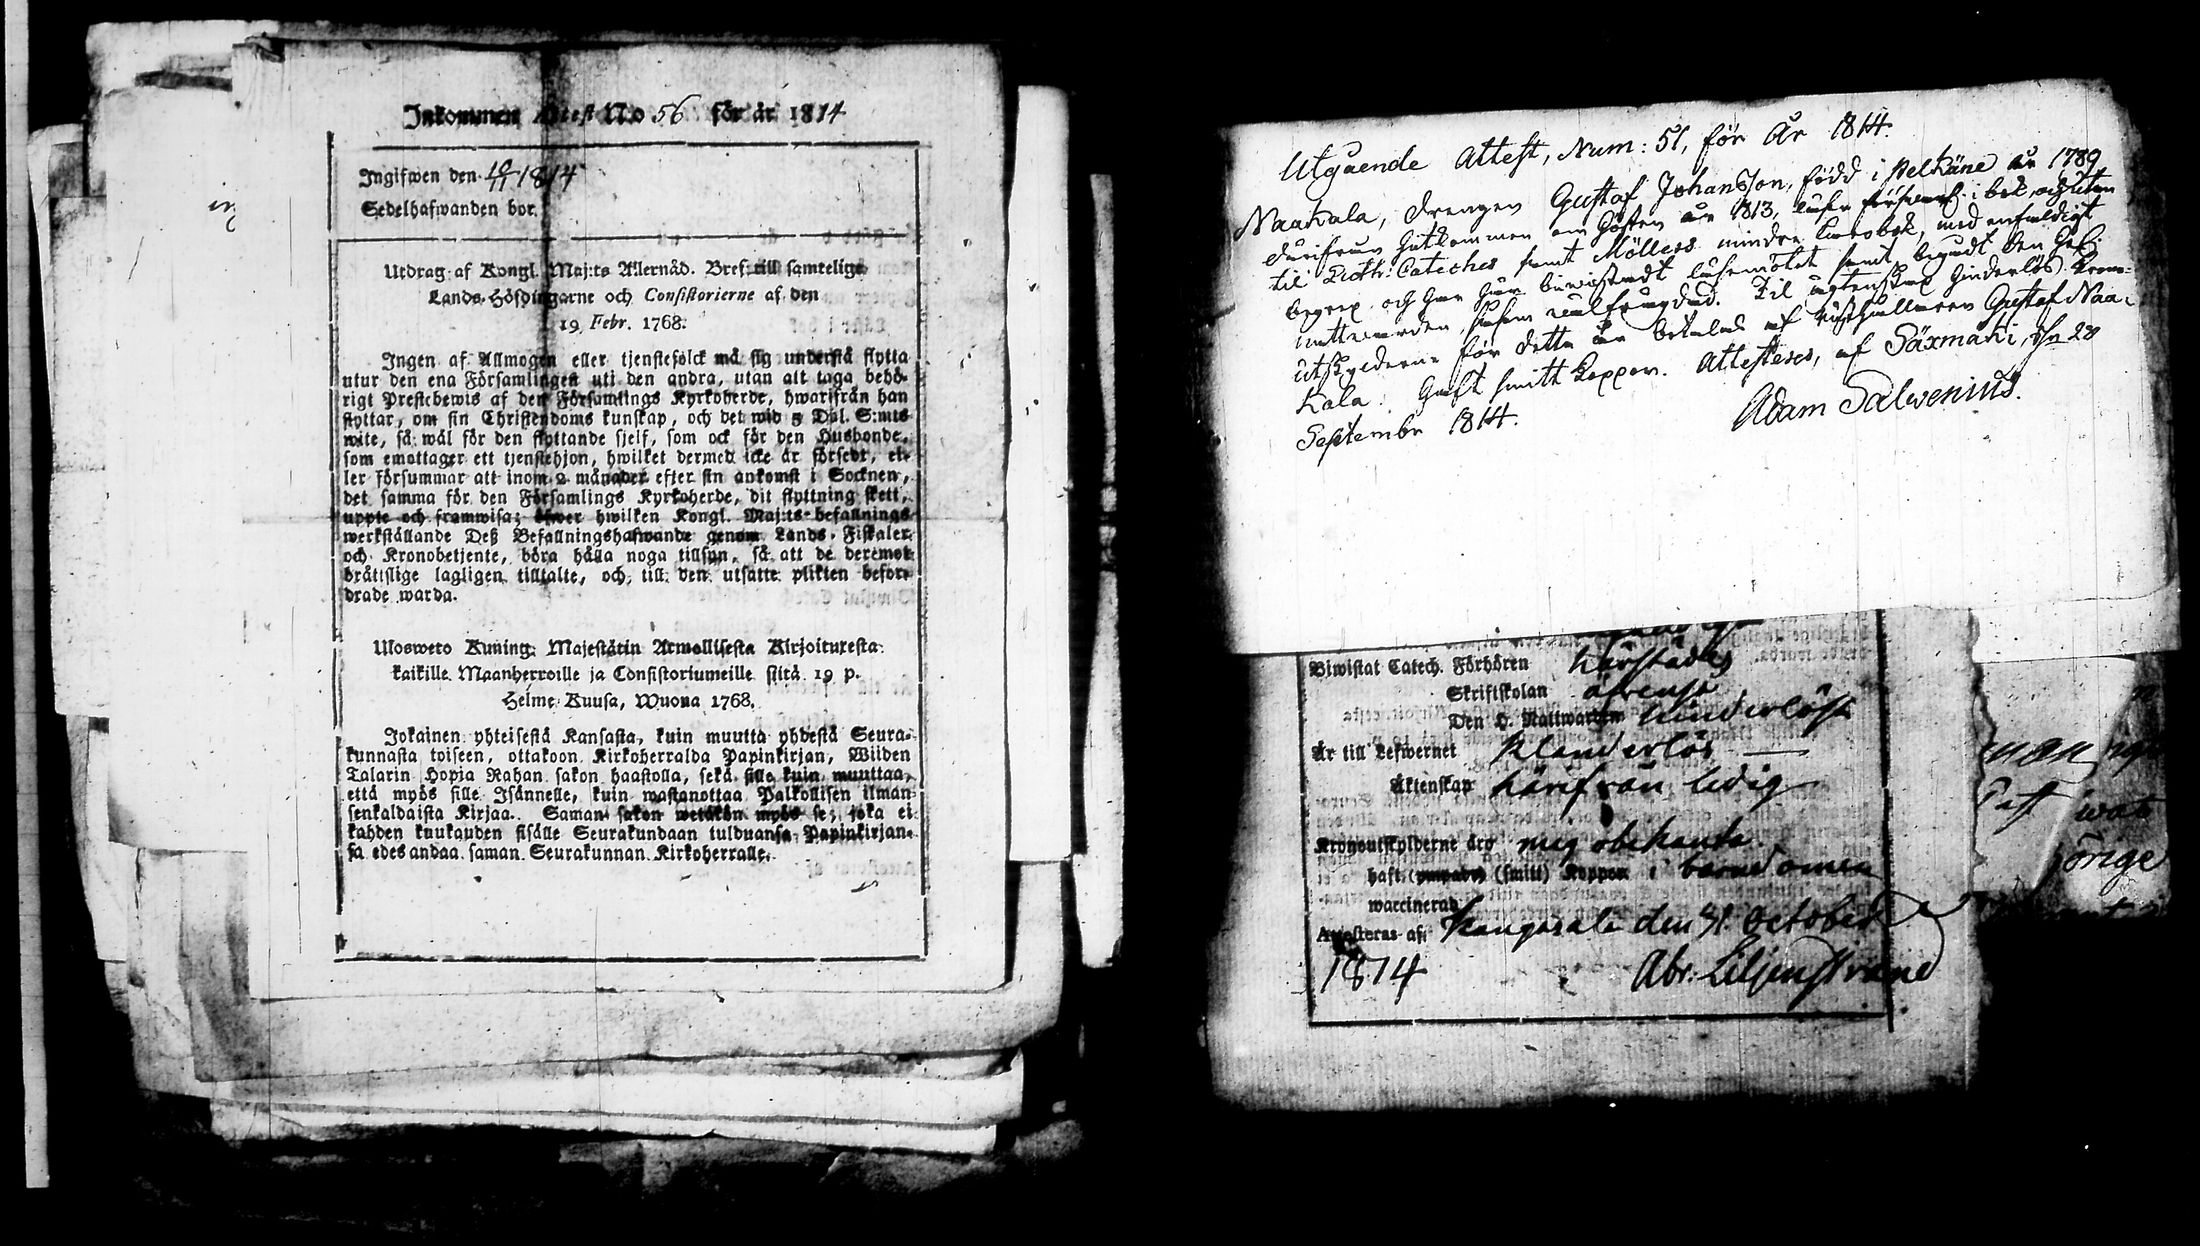 Inkommen Attest No 56 för år 1814
Ingifwen den 10/11 1814
Sedelhafwanden bor.
Utdrag af Kongl. Maj:ts Allernåd. Bref till samtelige
Lands-Höfdingarne och Consistorierne af den
19 Febr. 1768.
Ingen af Allmogen eller tjenstefolck må sig understå flytta
utur den ena Församlingen uti den andra, utan att taga behö-
rigt Prestebewis af den Församlings Kyrkoherde, hwarifrån han
flyttar, om sin Christendoms kunskap, och det wid 5 Dal. S:mts
wite, så wäl för den flyttande sjelf, som ock för den Husbonde,
som emottager ett tjenstehjon, hwilket dermed icke är försedt, el-
ler försummar att inom 2 månader efter sin ankomst i Socknen,
det samma för den Församlings Kyrkoherde, dit flyttning skett,
uppte och framwisa; öfwer hwilken Kongl. Maj:ts befallnings
werkställande Deß Befallningshafwande genom Lands-Fiskaler
och Kronobetjente, böra hålla noga tillsyn, så att de deremot
bråttslige lagligen tilltalte, och till den utsatte plikten befor-
drade warda.
Ulosweto Kuning: Majestätin Armollisesta Kirjoituxesta
kaikille Maanherroille ja Consistoriumeille siitä 19 p.
Helme Kuusa, Wuona 1768.
Jokainen yhteisestä Kansasta, kuin muutta yhdestä Seura-
kunnasta toiseen, ottakoon Kirkoherralda Papinkirjan, Wiiden
Talarin Hopia Rahan sakon haastolla, sekä sille kuin muuttaa,
että myös sille Isännelle, kuin wastanottaa Palkollisen ilman
senkaldaista Kirjaa. Saman sakon wetäkön myös se, joka ei
kahden kuukauden sisälle Seurakundaan tulduansa Papinkirjan-
sa edes andaa saman Seurakunnan Kirkoherralle.
Utgående Attest, Num: 51, för År 1814.
Naakala, drengen Gustaf Johansson, född i Pelkäne år 1789
durifrån hitkommen om hösten år 1813, läser i bok, och utan
til Luth: Cateches samt Möllers mindre Lärobok, med enfaldigt
begrep och har här biwistadt läsemötet samt begådt den Hel.
nattwarden Til ägtenskap hinderlös. Krono-
utskylderne för detta år betalad af Rusthållaren Gustaf Naa-
kala. Haft smitt koppor. Attesteres, af Säxmäki, d. 28
Septembr 1814.
Adam Salwenius.
Biwistat Catech. Förhören härstädes
Skriftskolan äfwenså
Den H. Nattwarden hinderlöst
Är till Lefwernet klanderlös
Äktenskap härifrån ledig
Kronoutskylderne äro mig obekanta
haft (ympade) (smitt) Koppor i barndomen
waccinerad
Attesteras af Kangasala den 31 October
1814
Abr: Liljenstrand